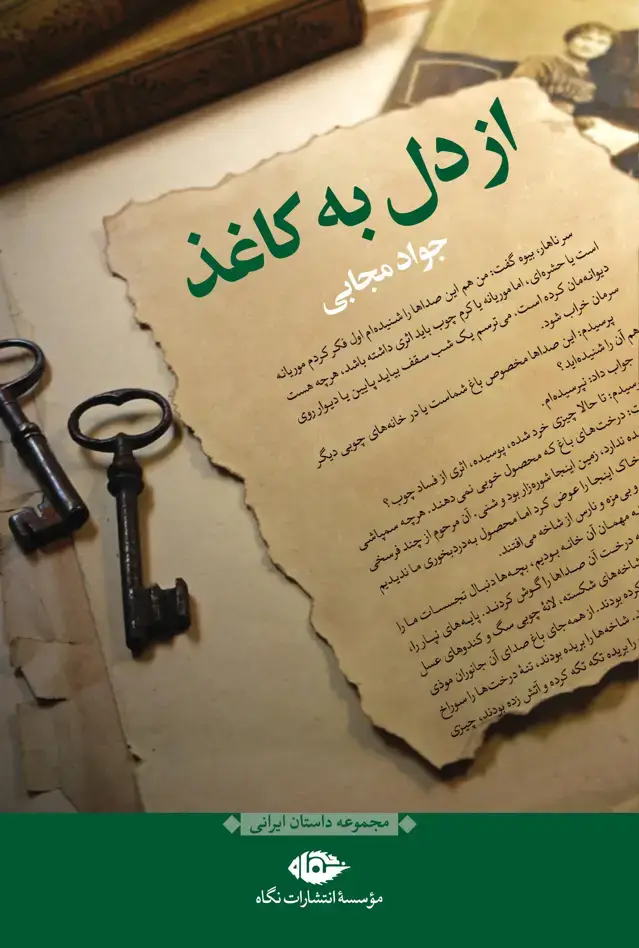 از دل به کاغذ
جواد مجابی
سر ناهار، بیوه گفت: من هم این صداها را شنیده‌ام اول فکر کردم موریانه
است یا حشره‌ای، اما موریانه یا کرم چوب باید اثری داشته باشد، هرچه هست
دیوانه‌مان کرده است. می‌ترسم یک شب سقف بیاید پایین یا دیوار روی
سرمان خراب شود.
پرسیدم: این صداها مخصوص باغ شماست یا در خانه‌های چوبی دیگر
هم آن را شنیده‌اید؟
جواب داد: نپرسیده‌ام.
پرسیدم: تا حالا چیزی خرد شده، پوسیده، اثری از فساد چوب؟
درخت‌های باغ که محصول خوبی نمی‌دهند. هرچه سم‌پاشی
ندارد، زمین اینجا شوره‌زار بود و شنی. آن مرحوم از چند فرسخی
خاک اینجا را عوض کرد اما محصول به‌دردبخوری ما ندیدیم
و بی‌مزه و نارس از شاخه می‌افتند.
مهمان آن خانه بودیم، بچه‌ها دنبال تجسسات ما را
درخت آن صداها را گوش کردند. پایه‌های نپار را،
شاخه‌های شکسته، لانهٔ چوبی سگ و کندوهای عسل
کرده بودند. از همه جای باغ صدای آن جانوران موذی
شاخه‌ها را بریده بودند، تنهٔ درخت‌ها را سوراخ
را بریده تکه تکه کرده و آتش زده بودند، چیزی
مجموعه داستان ایرانی
مؤسسهٔ انتشارات نگاه